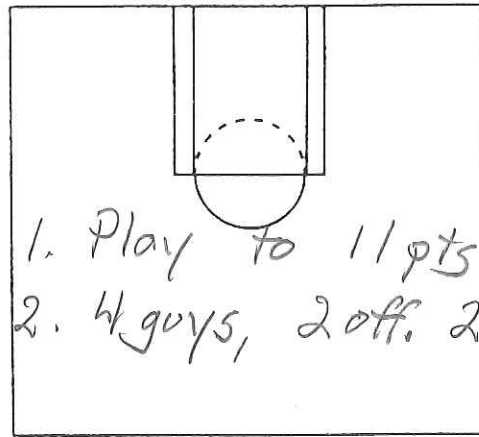 1. Play to 11 pts
2. 4 guys, 2 off. 2